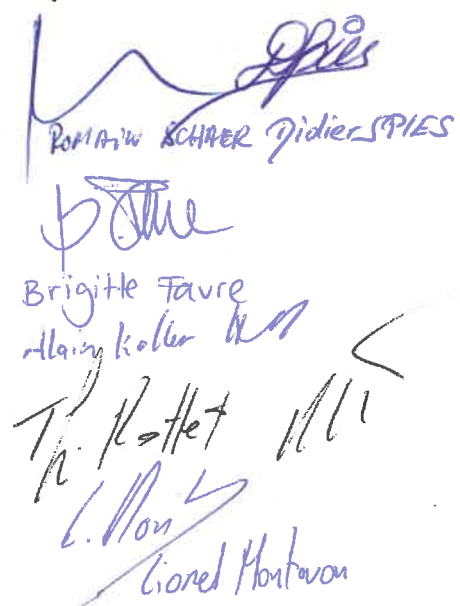 DSpies
ROMAIN SCHAER Didier SPIES
Brigitte Favre
Alain Koller
Th. Rottet
L. Mon
Lionel Montavon